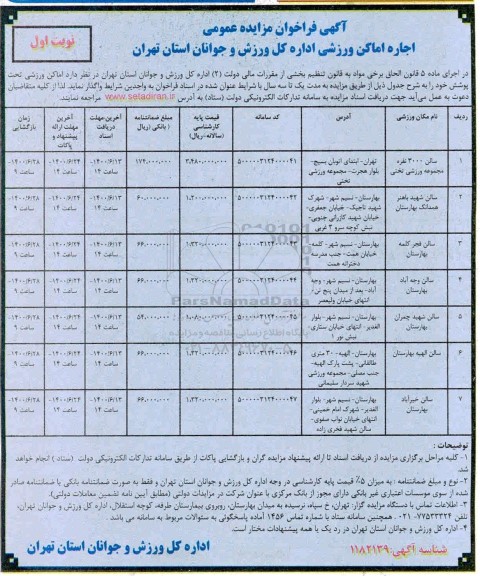 آگهی فراخوان مزایده عمومی
اجاره اماکن ورزشی اداره کل ورزش و جوانان استان تهران
نوبت اول
در اجرای ماده ۵ قانون الحاق برخی مواد به قانون تنظیم بخشی از مقررات مالی دولت (۲) اداره کل ورزش و جوانان استان تهران در نظر دارد اماکن ورزشی تحت
پوشش خود را به شرح جدول ذیل از طریق مزایده به مدت یک تا سه سال با شرایط عنوان شده در اسناد فراخوان به واجدین شرایط واگذار نماید. لذا از کلیه متقاضیان
دعوت به عمل می‌آید جهت دریافت اسناد مزایده به سامانه تدارکات الکترونیکی دولت (ستاد) به آدرس www.setadiran.ir مراجعه نمایند.
ردیف | نام مکان ورزشی | آدرس | کد سامانه | قیمت پایه کارشناسی (سالانه-ریال) | مبلغ ضمانتنامه بانکی (ریال) | آخرین مهلت دریافت اسناد | آخرین مهلت ارائه پیشنهاد و پاکات | زمان بازگشایی
۱ | سالن ۳۰۰۰ نفره مجموعه ورزشی تختی | تهران- ابتدای اتوبان بسیج- بلوار هجرت- مجموعه ورزشی تختی | ۵۰۰۰۰۰۳۱۲۴۰۰۰۰۴۱ | ۳،۴۸۰،۰۰۰،۰۰۰ | ۱۷۴،۰۰۰،۰۰۰ | ۱۴۰۰/۶/۱۳ ساعت ۱۴ | ۱۴۰۰/۶/۲۴ ساعت ۱۴ | ۱۴۰۰/۶/۲۸ ساعت ۹
۲ | سالن شهید باهنر همدانک بهارستان | بهارستان- نسیم شهر- شهرک شهید تاجیک- خیابان جعفری- خیابان شهید کازرانی جنوبی- نبش کوچه سرو ۲ غربی | ۵۰۰۰۰۰۳۱۲۴۰۰۰۰۴۲ | ۱،۲۰۰،۰۰۰،۰۰۰ | ۶۰،۰۰۰،۰۰۰ | ۱۴۰۰/۶/۱۳ ساعت ۱۴ | ۱۴۰۰/۶/۲۴ ساعت ۱۴ | ۱۴۰۰/۶/۲۸ ساعت ۹
۳ | سالن فجر کلمه بهارستان | بهارستان- نسیم شهر- کلمه خیابان همت- جنب مدرسه دخترانه همت | ۵۰۰۰۰۰۳۱۲۴۰۰۰۰۴۳ | ۱،۳۲۰،۰۰۰،۰۰۰ | ۶۶،۰۰۰،۰۰۰ | ۱۴۰۰/۶/۱۳ ساعت ۱۴ | ۱۴۰۰/۶/۲۴ ساعت ۱۴ | ۱۴۰۰/۶/۲۸ ساعت ۹
۴ | سالن وجه آباد بهارستان | بهارستان- نسیم شهر- وجه آباد- بعد از میدان پنج تن- انتهای خیابان ولیعصر | ۵۰۰۰۰۰۳۱۲۴۰۰۰۰۴۴ | ۱،۳۲۰،۰۰۰،۰۰۰ | ۶۶،۰۰۰،۰۰۰ | ۱۴۰۰/۶/۱۳ ساعت ۱۴ | ۱۴۰۰/۶/۲۴ ساعت ۱۴ | ۱۴۰۰/۶/۲۸ ساعت ۹
۵ | سالن شهید چمران بهارستان | بهارستان- نسیم شهر- بلوار الغدیر- انتهای خیابان ستاری- نبش نور ۱ | ۵۰۰۰۰۰۳۱۲۴۰۰۰۰۴۵ | ۱،۰۸۰،۰۰۰،۰۰۰ | ۵۴،۰۰۰،۰۰۰ | ۱۴۰۰/۶/۱۳ ساعت ۱۴ | ۱۴۰۰/۶/۲۴ ساعت ۱۴ | ۱۴۰۰/۶/۲۸ ساعت ۹
۶ | سالن الهیه بهارستان | بهارستان- الهیه- ۳۰ متری طالقانی- پشت پارک الهیه- جنب مصلی- مجموعه ورزشی شهید سردار سلیمانی | ۵۰۰۰۰۰۳۱۲۴۰۰۰۰۴۶ | ۱،۳۲۰،۰۰۰،۰۰۰ | ۶۶،۰۰۰،۰۰۰ | ۱۴۰۰/۶/۱۳ ساعت ۱۴ | ۱۴۰۰/۶/۲۴ ساعت ۱۴ | ۱۴۰۰/۶/۲۸ ساعت ۹
۷ | سالن خیرآباد بهارستان | بهارستان- نسیم شهر- بلوار الغدیر- شهرک امام خمینی- انتهای خیابان نواب صفوی- سالن شهید فخری زاده | ۵۰۰۰۰۰۳۱۲۴۰۰۰۰۴۷ | ۱،۳۲۰،۰۰۰،۰۰۰ | ۶۶،۰۰۰،۰۰۰ | ۱۴۰۰/۶/۱۳ ساعت ۱۴ | ۱۴۰۰/۶/۲۴ ساعت ۱۴ | ۱۴۰۰/۶/۲۸ ساعت ۹
توضیحات :
۱- کلیه مراحل برگزاری مزایده از دریافت اسناد تا ارائه پیشنهاد مزایده گران و بازگشایی پاکات از طریق سامانه تدارکات الکترونیکی دولت (ستاد) انجام خواهد
شد.
۲- نوع و مبلغ ضمانتنامه : به میزان ۵٪ قیمت پایه کارشناسی در وجه اداره کل ورزش و جوانان استان تهران و فقط به صورت ضمانتنامه بانکی یا ضمانتنامه صادر
شده از سوی موسسات اعتباری غیر بانکی دارای مجوز از بانک مرکزی با عنوان شرکت در مزایدات دولتی (مطابق آیین نامه تضمین معاملات دولتی).
۳- اطلاعات تماس با دستگاه مزایده گزار: تهران، خ سپاه، نرسیده به میدان بهارستان، روبروی بیمارستان طرفه، کوچه استقلال، اداره کل ورزش و جوانان تهران،
تلفن ۷۷۵۳۳۳۲۴-۰۲۱ . همچنین سامانه ستاد با شماره تماس ۱۴۵۶ آماده پاسخگوئی به سئوالات مربوط به سامانه می باشد .
۴- اداره کل ورزش و جوانان استان تهران در رد یک یا همه پیشنهادات مختار است.
اداره کل ورزش و جوانان استان تهران
شناسه آگهی: ۱۱۸۲۱۳۹
ParsNamadData
پایگاه اطلاع رسانی مناقصه و مزایده